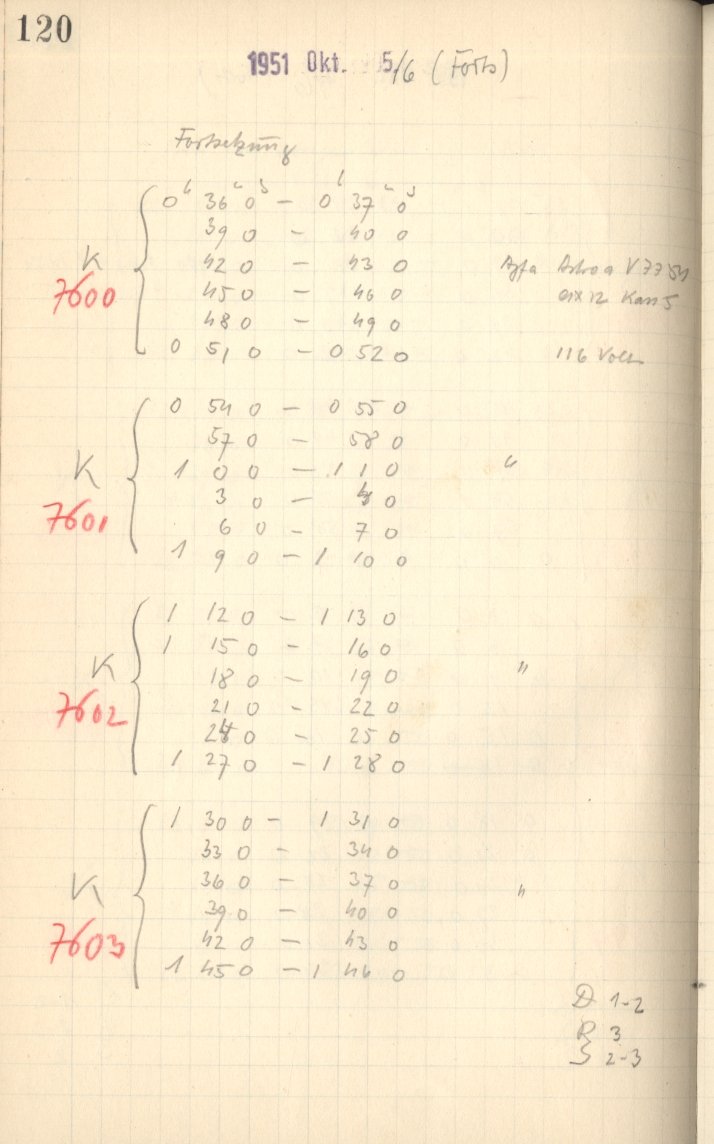 120
1951 Okt. 5/6 (Forts)
Fortsetzung
0h 36m 0s – 0h 37m 0s
39 0 – 40 0
K 42 0 – 43 0 Agfa Astro
7600 45 0 – 46 0 Kass 5
48 0 – 49 0
0 51 0 – 0 52 0 116 Volt
0 54 0 – 0 55 0
57 0 – 58 0
K 1 0 0 – 1 1 0 "
7601 3 0 – 4 0
6 0 – 7 0
1 9 0 – 1 10 0
1 12 0 – 1 13 0
1 15 0 – 16 0
K 18 0 – 19 0 "
7602 21 0 – 22 0
24 0 – 25 0
1 27 0 – 1 28 0
1 30 0 – 1 31 0
33 0 – 34 0
K 36 0 – 37 0 "
7603 39 0 – 40 0
42 0 – 43 0
1 45 0 – 1 46 0
D 1-2
R 3
S 2-3